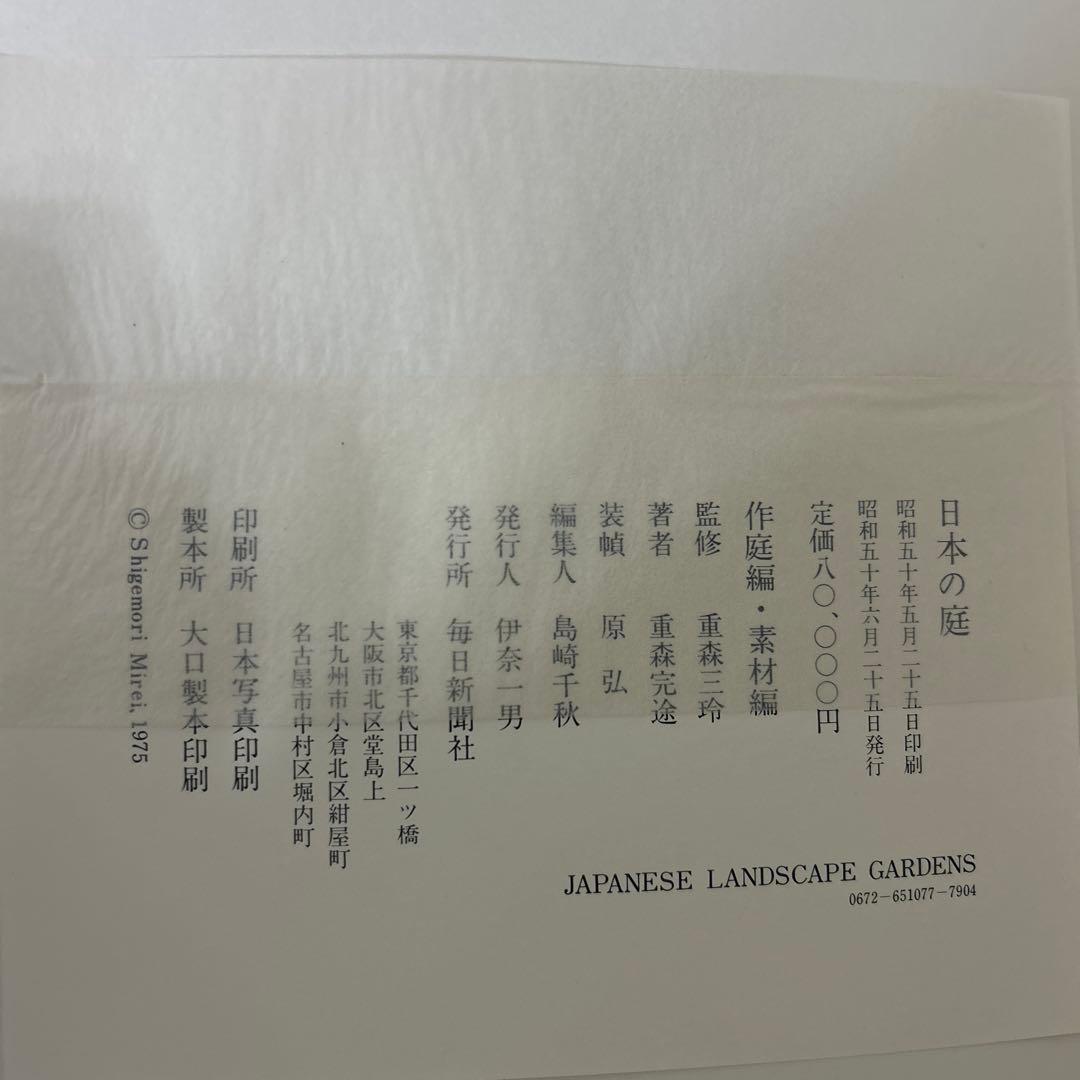 日本の庭
昭和五十年五月二十五日印刷
昭和五十年六月二十五日発行
定価八〇、〇〇〇円
作庭編・素材編
監修 重森三玲
著者 重森完途
装幀 原 弘
編集人 島崎千秋
発行人 伊奈一男
発行所 毎日新聞社
東京都千代田区一ツ橋
大阪市北区堂島上
北九州市小倉北区紺屋町
名古屋市中村区堀内町
印刷所 日本写真印刷
製本所 大口製本印刷
© Shigemori Mirei, 1975
JAPANESE LANDSCAPE GARDENS
0672-651077-7904